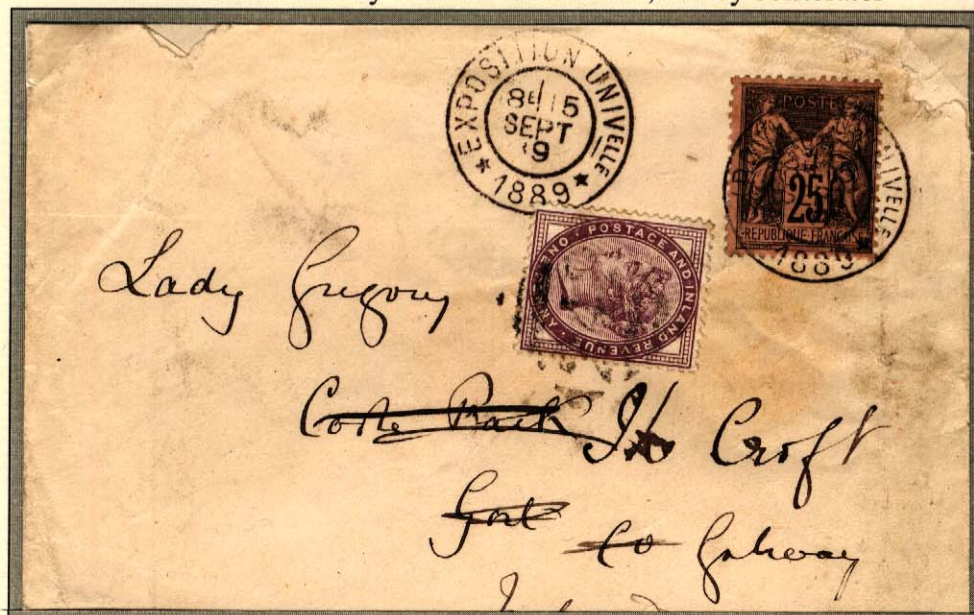 EXPOSITION UNIVELLE
8E 15
SEPT
'9
1889
POSTES
25
REPUBLIQUE FRANCAISE
UNIVELLE
1889
POSTAGE AND INLAND REVENUE
Lady Gregory
Coole Park The Croft
Gort
Co Galway